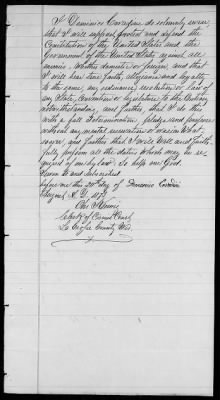 I Dominics Corradini do solemnly swear
that I will support protect and defend the
Constitution of the United States and the
Government of the United States against all
enemies whether domestic or foreign and that
I will bear true faith, allegiance and loyalty
to the same, any ordinance, resolution or law of
any State, Convention or Legislature to the Contrary
notwithstanding, and further that I do this
with a full determination, pledge and purpose
without any mental reservation or evasion what
soever, and further that I will well and faith
fully perform all the duties which may be re
quired of me by law. So help me God.
Sworn to and subscribed
before me this day of Dominic Corradini
August A. D.
Clerk of Circuit Court
La Crosse County Wis.